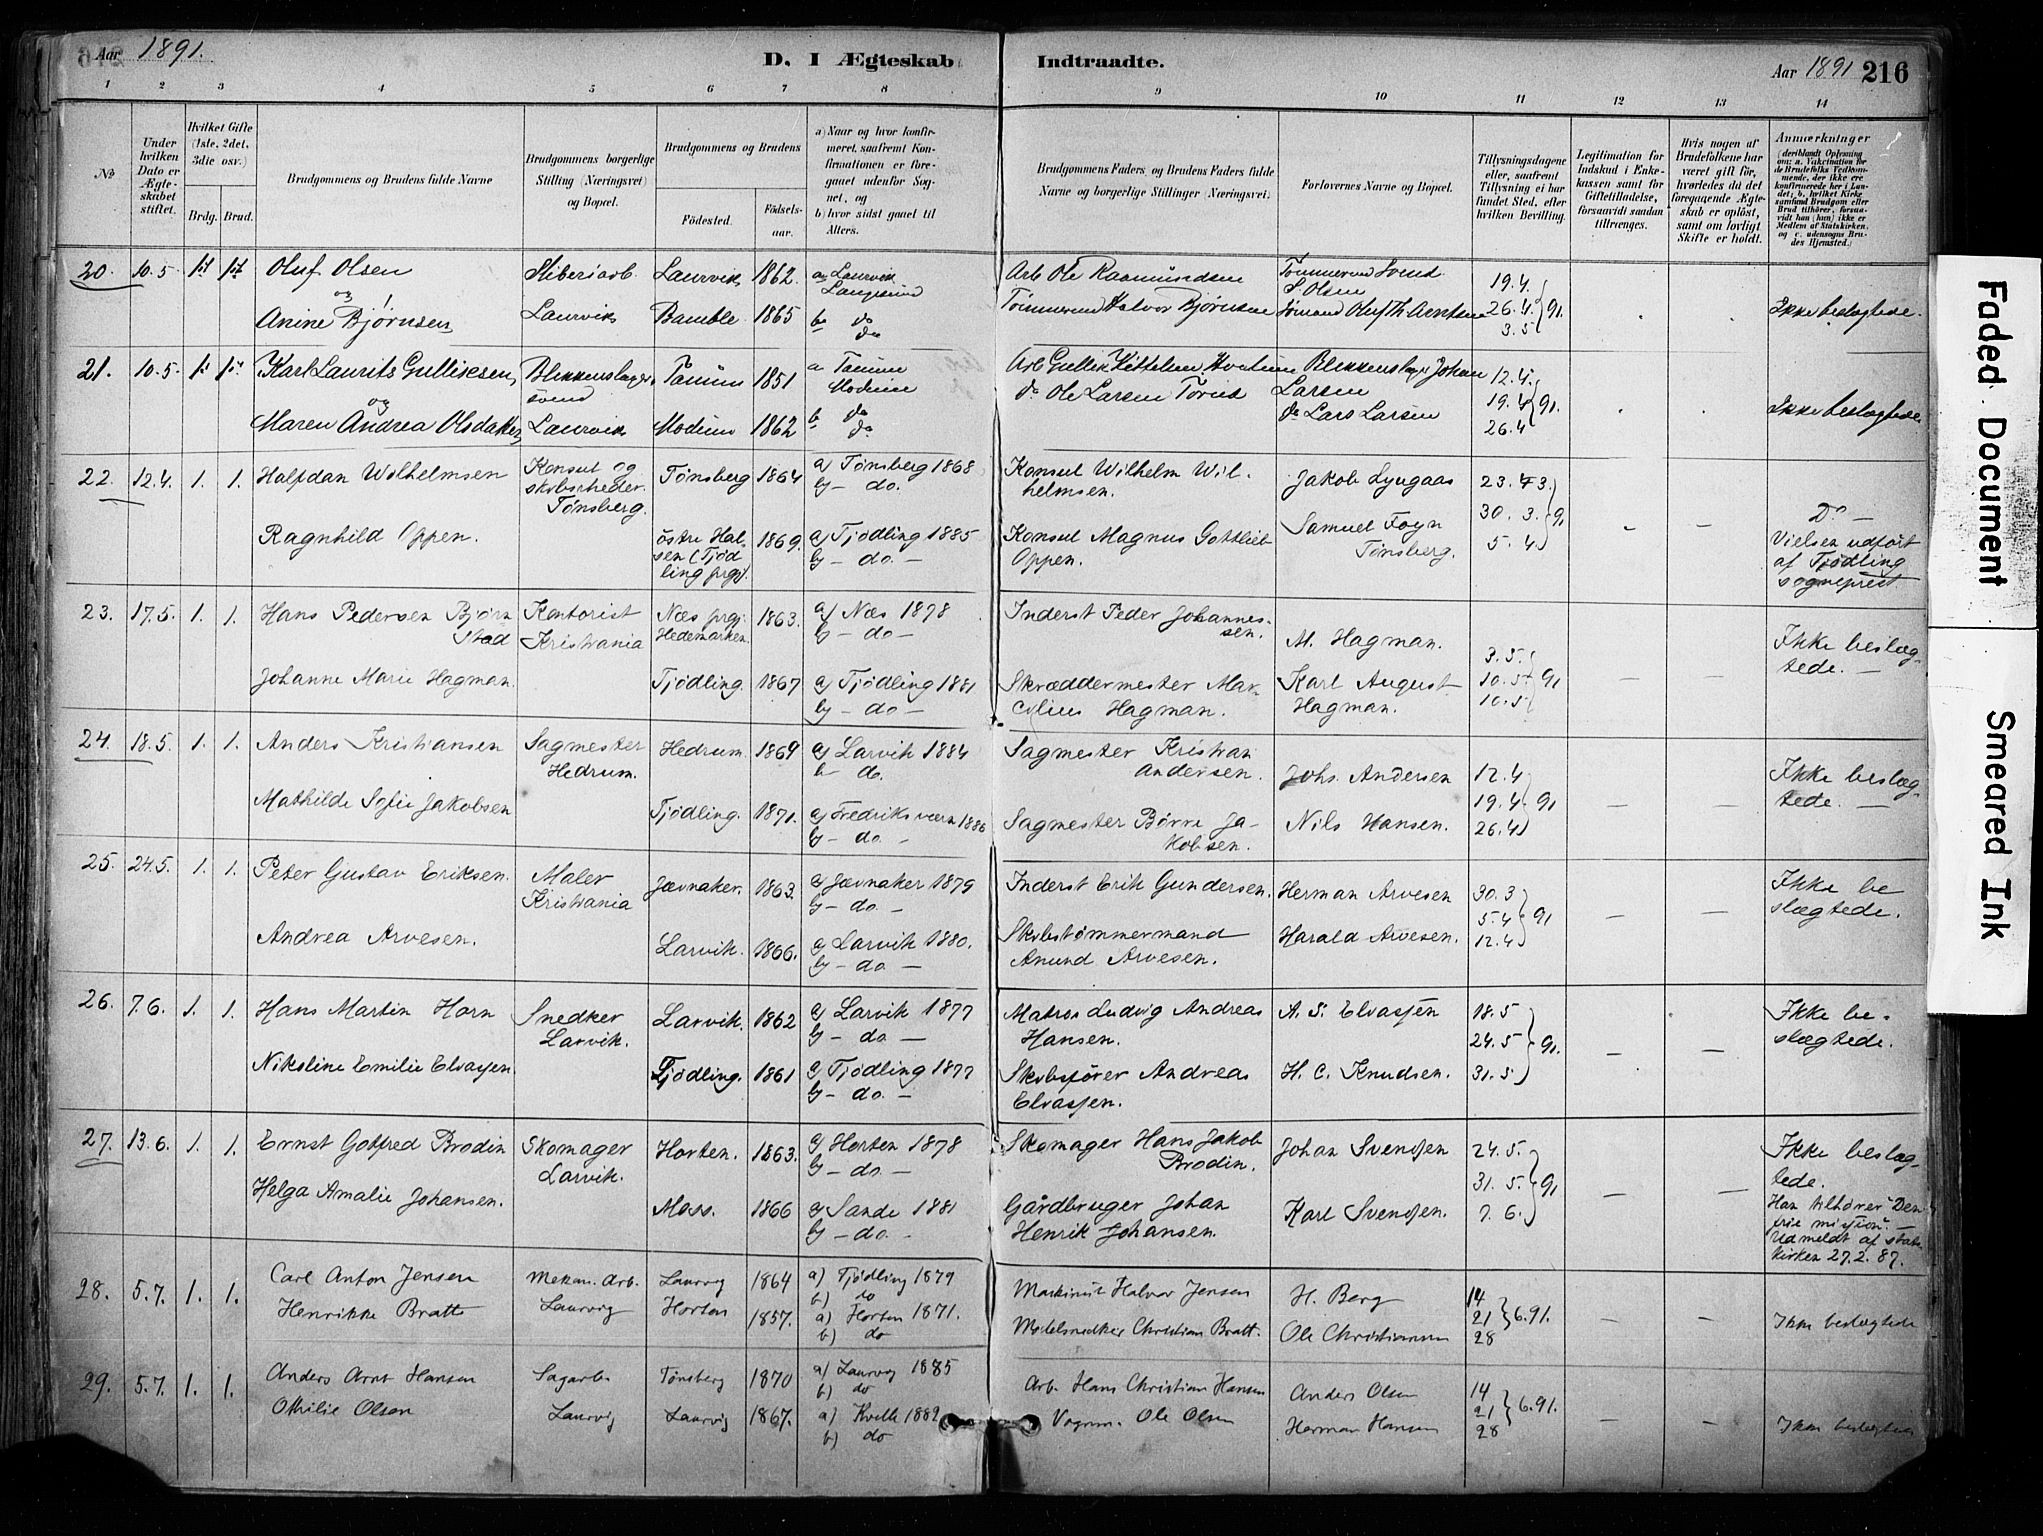 Aar 1891.
D. I Ægteskab Indtraadte.
Aar 1891 216
1 2 3 4 5 6 7 8 9 10 11 12 13 14
No
Under hvilken Dato er Ægteskabet stiftet.
Hvilket Gifte (1ste, 2det, 3die osv.)
Brdg. Brud.
Brudgommens og Brudens fulde Navne
Brudgommens borgerlige Stilling (Næringsvei) og Bopæl.
Brudgommens og Brudens
Fødested. Fødselsaar.
a) Naar og hvor konfirmeret, saafremt Konfirmationen er foregaaet udenfor Sognet, og b) hvor sidst gaaet til Alters.
Brudgommens Faders og Brudens Faders fulde Navne og borgerlige Stillinger (Næringsvei).
Forlovernes Navne og Bopæl.
Tillysningsdagene eller, saafremt Tillysning ei har fundet Sted, efter hvilken Bevilling.
Legitimation for Indskud i Enkekassen samt for Giftetilladelse, forsaavidt saadan tiltrænges.
Hvis nogen af Brudefolkene har været gift før, hvorledes da det foregaaende Ægteskab er opløst, samt om lovligt Skifte er holdt.
Anmærkninger
20. 10.5 1st 1st Oluf Olsen Laurvik 1862. a Laurvik Arb Ole Rasmundsen 19.4.
og Langesund Olsen
Anine Bjørnsen Laurvik Bamble 1865 b do Tømmermand Halvor Bjørnsen 26.4. 91. Ikke beslægtede.
do 3.5
21. 10.5 Karl Laurits Gulliksen Blikkenslager Tanum 1851 a Tanum Arb Gullik Blikkenslager Johan 12.4.
og svend Modum do Ole Larsen Larsen 19.4 91.
Maren Andrea Laurvik Modum 1862 b do do Lars Larsen 26.4 Ikke beslægtede
do
22. 12.4. 1. 1. Halfdan Wilhelmsen Konsul og skibsrheder Tønsberg. Tønsberg 1864 a) Tønsberg 1868 b) - do. Konsul Wilhelm Wilhelmsen. Jakob Lyngaas 23.3.
Ragnhild Oppen. østre Halsen (Tjødling prgj. 1869. a) Tjødling 1885 b) - do. - Konsul Magnus Gottlieb Oppen. Samuel Foyn Tønsberg. 30.3. 5.4 91 - - Do - Vielsen udført af Tjødling sogneprest
23. 17.5. 1. 1. Hans Pedersen Bjørnstad Kontorist Kristiania Næs prgj. Hedemarken. 1863. a) Næs 1878 b) - do - Inderst Peder Johannessen. M. Hagman. 3.5. Ikke beslægtede. -
Johanne Marie Hagman. Tjødling. 1867 a) Tjødling 1881 b) - do - Skræddermester Marcelius Hagman. Karl August Hagman. 10.5 91 - -
24. 18.5. 1. 1. Anders Kristiansen Sagmester Hedrum. Hedrum. 1869 a) Larvik 1884 b) - do. Sagmester Kristian Andersen. Johs. Andersen 12.4 Ikke beslægtede. -
Mathilde Sofie Jakobsen Tjødling. 1871. a) Fredriksværn 1886 b) - do. - Sagmester Børre Jakobsen. Nils Hansen. 19.4. 26.4 91 - -
25. 24.5. 1. 1. Peter Gustav Eriksen. Maler Kristiania Jævnaker. 1863. a) Jævnaker 1879 b) - do. - Inderst Erik Gundersen. Herman Arvesen 30.3 Ikke beslægtede.
Andrea Arvesen. Larvik. 1866. a) Larvik 1880. b) - do - Skibstømmermand Amund Arvesen. Harald Arvesen. 5.4 12.4 91 - -
26. 7.6. 1. 1. Hans Martin Horn Snedker Larvik. Larvik. 1862 a) Larvik 1877 b) - do - Matros Ludvig Andreas Hansen. A. S. Elvasjen 18.5 Ikke beslægtede.
Nikoline Emilie Elvasjen Tjødling. 1861 a) Tjødling 1877 b) - do. - Skibsfører Andreas Elvasjen. H. C. Knudsen. 24.5 31.5 91. - -
27. 13.6. 1. 1. Ernst Gotfred Brodin Skomager Larvik. Horten. 1863. a) Horten 1878 b) - do. - Skomager Hans Jakob Brodin. Johan Svendsen 24.5. Ikke beslægtede.
Helga Amalie Johansen. Moss. 1866 a) Sande 1881 b) - do. Gårdbruger Johan Henrik Johansen. Karl Svendsen. 31.5. 7.6. 91 - - Han tilhører "Den frie misjion". - Udmeldt af statskirken 27.2.87.
28. 5.7. 1. 1. Carl Anton Jensen Mekan. Arb. Laurvig 1864 a) Tjødling 1879 b) do Maskinist Halvor Jensen H. Berg 14
Henrikke Bratt Laurvig Horten 1857. a) Horten 1871. b) do Modelsnedker Christian Bratt. Ole Christiansen 21 28 6.91. - - Ikke beslægtede
29. 5.7. 1. 1. Anders Arnt Hansen Sagarb. Tønsberg 1870 a) Laurvig 1885 b) do Arb. Hans Christian Hansen Anders Olsen 14
Othilie Olsen Laurvig Laurvig 1867. a) 1882 b) do Ole Olsen Herman Hansen 21 28 6.91. - - Ikke beslægtede
Faded Document
Smeared Ink